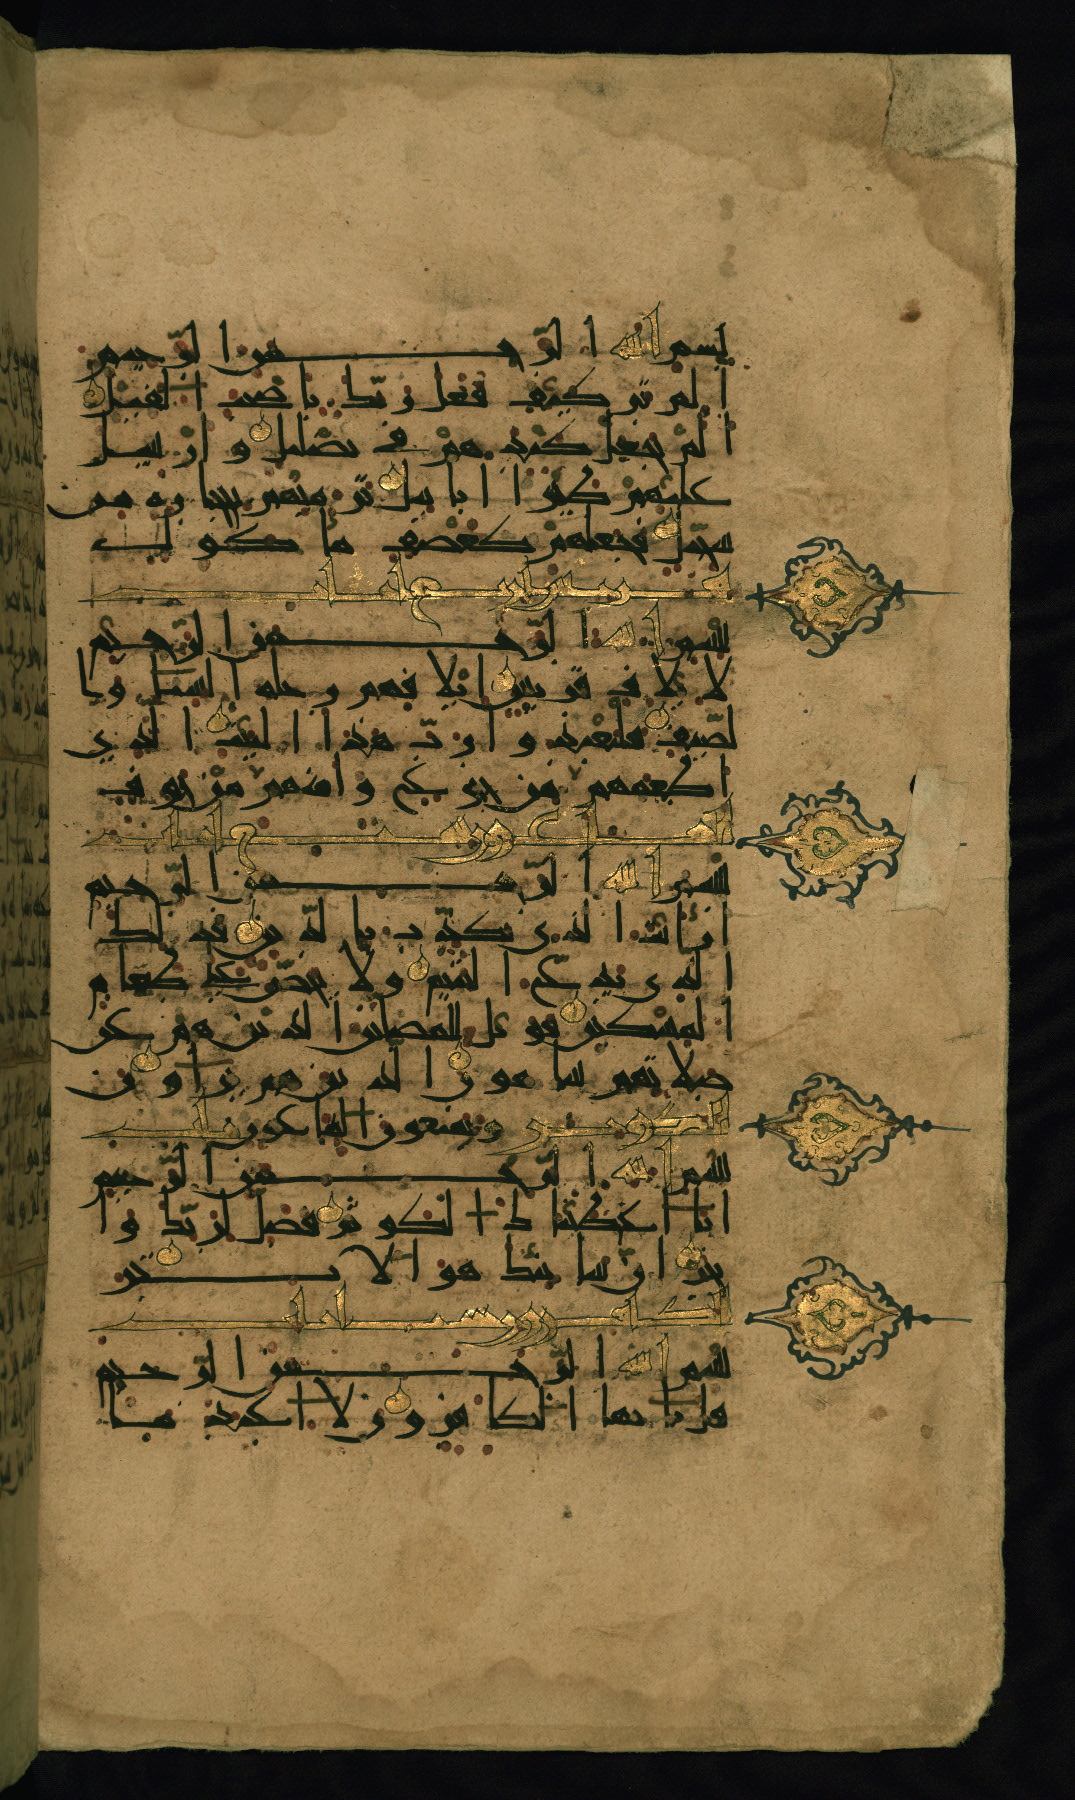 بسم الله الرحمن الرحيم
الم تر كيف فعل ربك باصحب الفيل
الم يجعل كيدهم في تضليل وارسل
عليهم طيرا ابابيل ترميهم بحجارة من
سجيل فجعلهم كعصف ماكول
قريش اربع ايات
بسم الله الرحمن الرحيم
لايلاف قريش ايلافهم رحلة الشتا وا
لصيف فليعبدوا رب هذا البيت الذي
اطعمهم من جوع وامنهم من خوف
الماعون سبع ايات
بسم الله الرحمن الرحيم
ارايت الذي يكذب بالدين فذلك
الذي يدع اليتيم ولا يحض على طعام
المسكين فويل للمصلين الذين هم عن
صلاتهم ساهون الذين هم يراون
ويمنعون الماعون الكوثر ثلث
بسم الله الرحمن الرحيم
انا اعطينك الكوثر فصل لربك وا
نحر ان شانئك هو الابتر
الكافرون ست ايات
بسم الله الرحمن الرحيم
قل يايها الكفرون لا اعبد ما